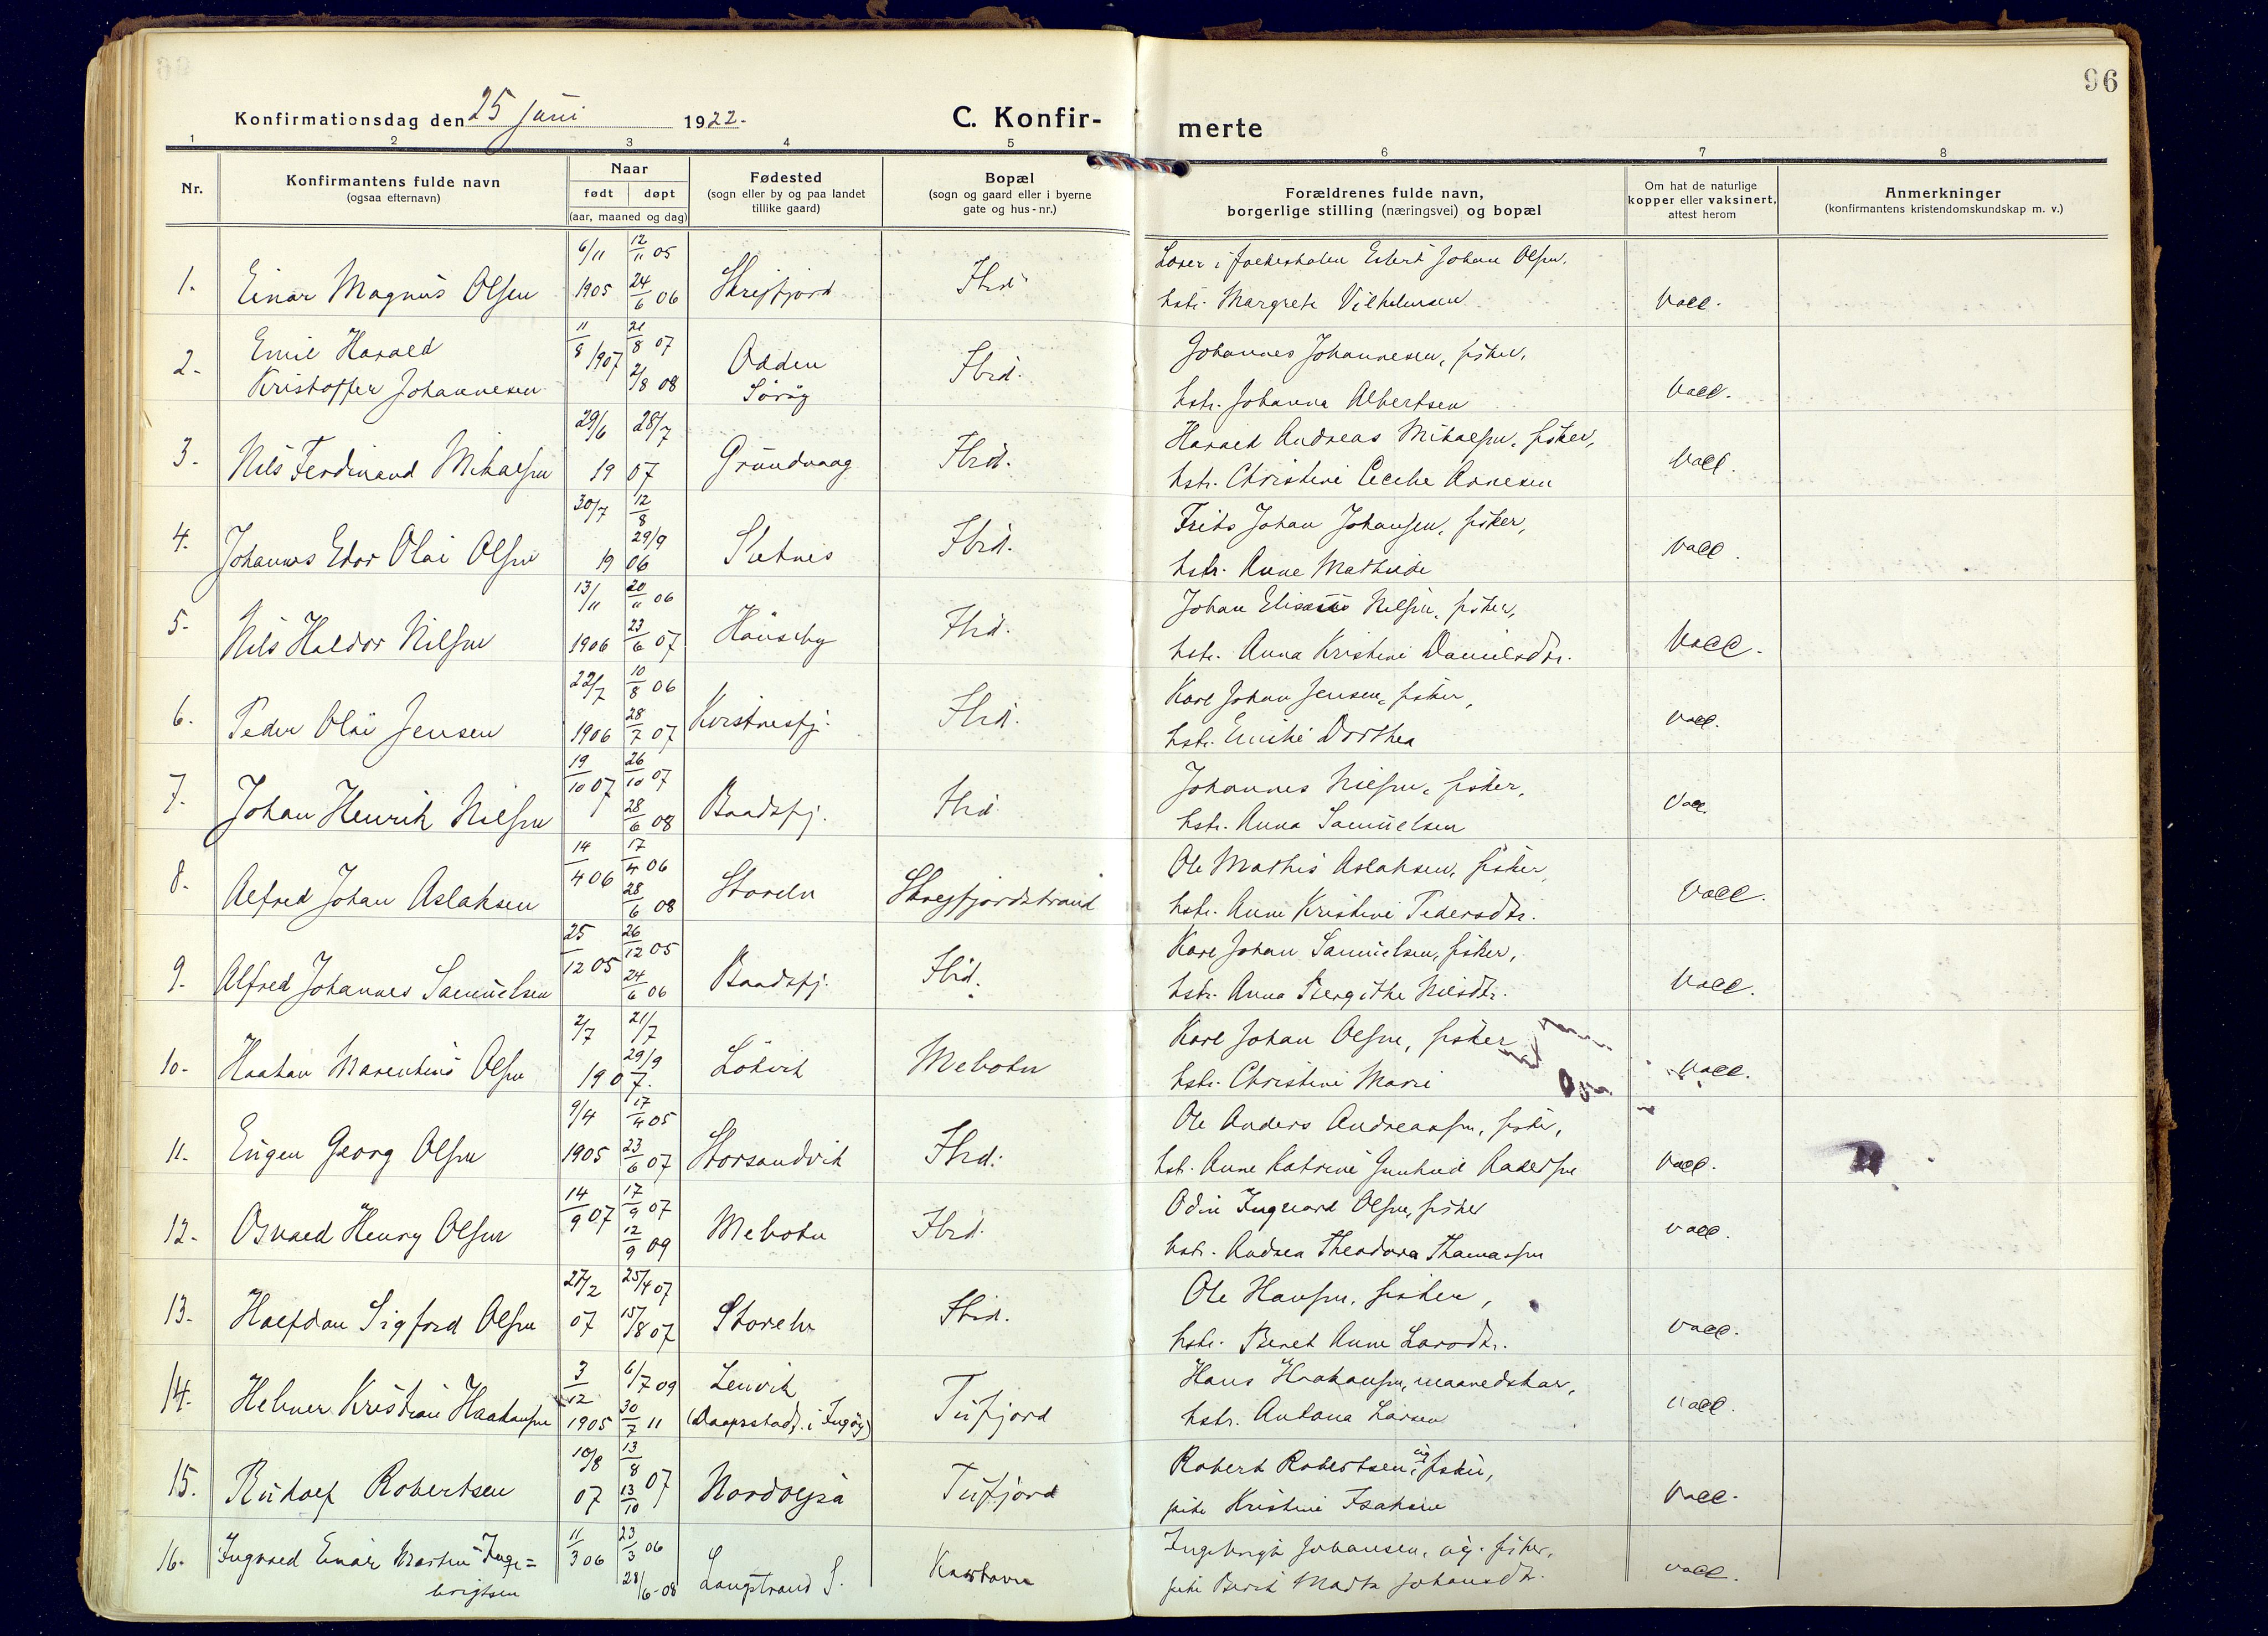 96
Konfirmationsdag den 25 juni 1922.
C. Konfir-
merte
1 2 3 4 5 6 7 8
Nr.
Konfirmantens fulde navn
(ogsaa efternavn)
Naar
født døpt
(aar, maaned og dag)
Fødested
(sogn eller by og paa landet
tillike gaard)
Bopæl
(sogn og gaard eller i byerne
gate og hus-nr.)
Forældrenes fulde navn,
borgerlige stilling (næringsvei) og bopæl
Om hat de naturlige
kopper eller vaksinert,
attest herom
Anmerkninger
(konfirmantens kristendomskundskap m. v.)
6/11 12/11 05 Johan Olsen,
1. Einar Magnus Olsen 1905 24/6 06 Skrejfjord Ibid. hstr. Margrete Vilhelmsen vacc.
Emil Harald 11/8 1907 21/8 07 Odden Johannes Johannesen, fisker,
2. Kristoffer Johannesen 2/8 08 Sørøy Ibid. hstr. Johanna Albertsen vacc.
29/6 28/7 Harald Andreas Mikalsen, fisker,
3. Nils Ferdinand Mikalsen 1907 Grundvaag Ibid. hstr. Christine Cecilie Arnesen vacc.
30/7 12/8 29/9 Frits Johan Johansen, fisker,
4. Johannes Edor Olai Olsen 1906 Sletnes Ibid. hstr. Anne Mathilde vacc.
13/11 20/11 06 Johan Elisæus Nilsen, fisker,
5. Nils Haldor Nilsen 1906 23/6 07 Ibid. hstr. Anna Kristine Danielsdtr. vacc.
22/7 10/8 06 Karl Johan Jensen, fisker,
6. Peder Olai Jensen 1906 28/7 07 Ibid. hstr. Emilie Dorthea vacc.
19/10 07 26/10 07 Johannes Nilsen, fisker,
7. Johan Henrik Nilsen 28/6 08 Baadsfj. Ibid. hstr. Anna Samuelsen vacc.
14/4 06 17/4 06 Ole Mathis Aslaksen, fisker,
8. Alfred Johan Aslaksen 28/6 08 Storelv Skrejfjordstrand hstr. Anne Kristine Pedersdtr. vacc.
25/12 05 26/12 05 Karl Johan Samuelsen, fisker,
9. Alfred Johannes Samuelsen 24/6 06 Baadsfj. Ibid. hstr. Anna Bergithe Nilsdtr. vacc.
2/7 21/7 29/9 Karl Johan Olsen, fisker
10. Haakan Marentius Olsen 1907. Lökvik Mebotn hstr. Christine Marie vacc.
9/4 17/4 05 Ole Anders Andreassen, fisker,
11. Eugen Georg Olsen 1905 23/6 07 Storsandvik Ibid. hstr. Anne Katrine Gunhild vacc.
14/9 07 17/9 07 Odin Ingvard Olsen, fisker
12. Osvald Henry Olsen 12/9 09 Mebotn Ibid. hstr. Andrea Theodora Thomassen vacc.
27/2 25/4 07 Ole Hansen, fisker,
13. Halfdan Sigford Olsen 07 15/8 07 Storelv Ibid. hstr. Beret Anne Larsdtr. vacc.
3/12 6/7 09 Lenvik Hans Haakansen, maanedskar,
14. Helmer Kristian Haakansen 1905 30/7 11 (Daapsstadf. i Ingøy) Tufjord hstr. Antona Larsen vacc.
10/8 13/8 07 Robert Robertsen, ug. fisker,
15. Rudolf Robertsen 07 13/10 Tufjord pike Kristine Isaksen vacc.
11/3 06 23/3 06 Ingebrigt Johansen, ug. fisker,
16. Ingvald Einar Martin Inge=
brigtsen 28/6-08 Langstrand S. Karhavn pike Berit Marta Johansdtr. vacc.